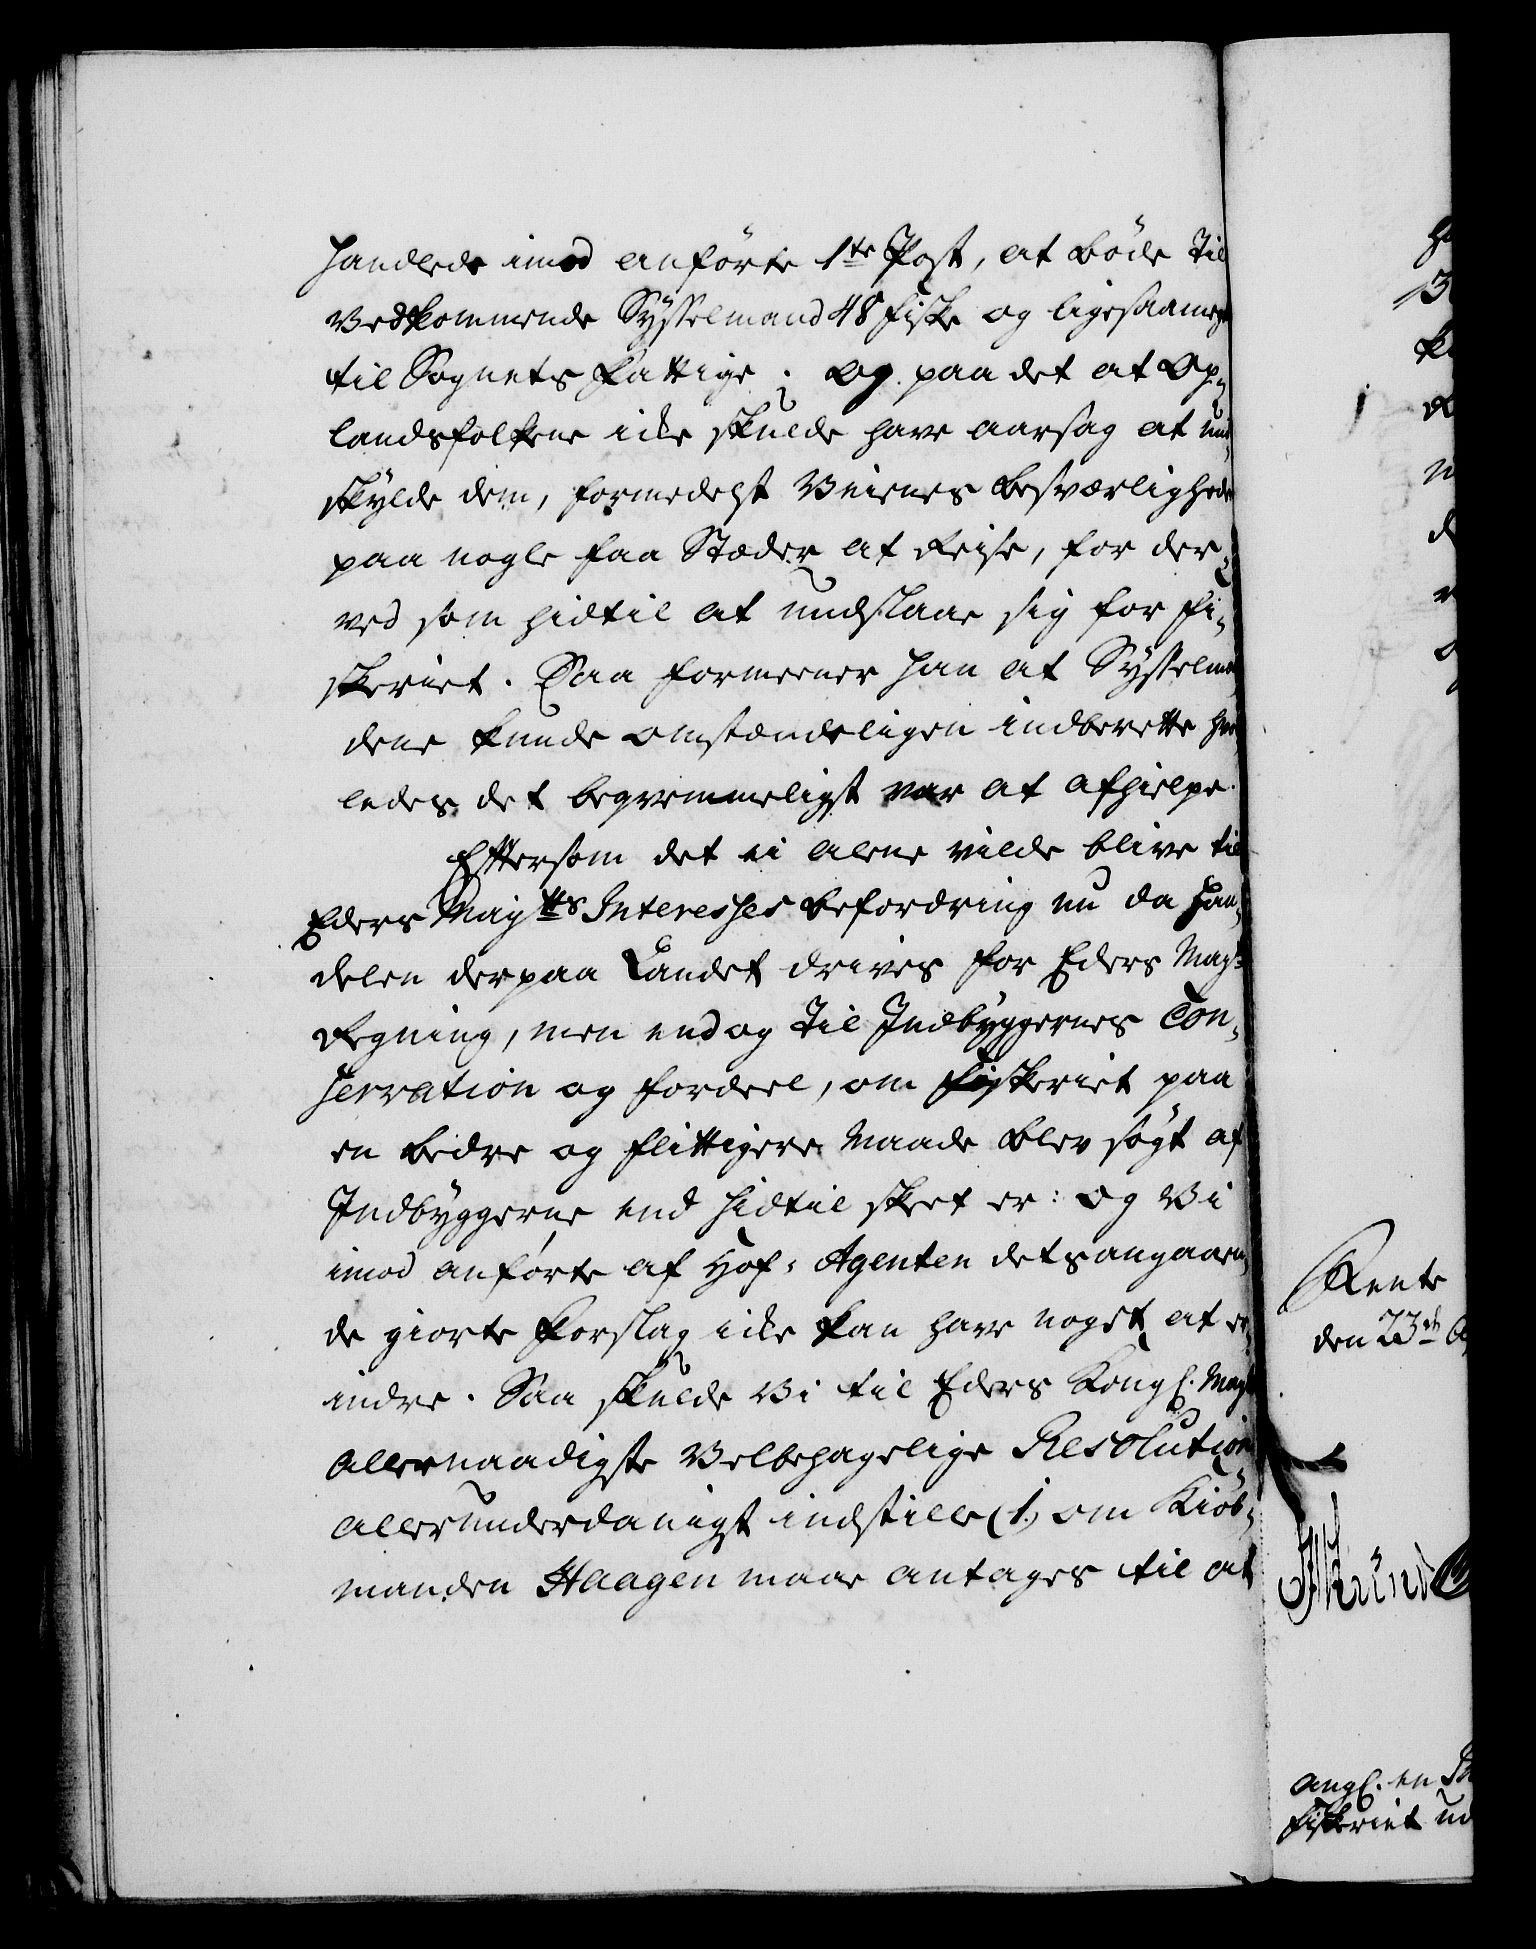 handlede imod anførte 1te Post, at bøde til
Vedkommende Sysselmand 48 Fiske og ligesaameget
til Sognets Fattige; og paa det at Op-
landsfolkene icke skulde have aarsag at und-
skylde dem, formedelst Veienes besværlighede
paa nogle faa Stæder at Reise, for der-
ved som hidtil at undslaae sig for Fi-
skeriet. Saa formeener han at Sysselmæn-
dene kunde omstændeligen indberette hvor-
ledes det beqvemmeligst var at afhielpe.
Eftersom det ei alene vilde blive til
Eders Maytts Interesses befordring nu da Han-
delen derpaa Landet drives for Eders Mayts
Regning, men endog til Indbyggernes Con-
servation og fordeel, om Fiskeriet paa
en bedre og flittigere Maade blev søgt af
Indbyggerne end hidtil skeet er: og Vi
imod anførte af Hof-Agenten detsangaaen-
de giorte Forslag icke kan have noget at er-
indre. Saa skulde Vi til Eders Kongl. Mayts
allernaadigste Velbehagelige Resolution
allerunderdanigst indstille (1.) om Kiøb-
manden Haagen maae antages til at
Rente
den 23de
angl. en
Fiskeriet